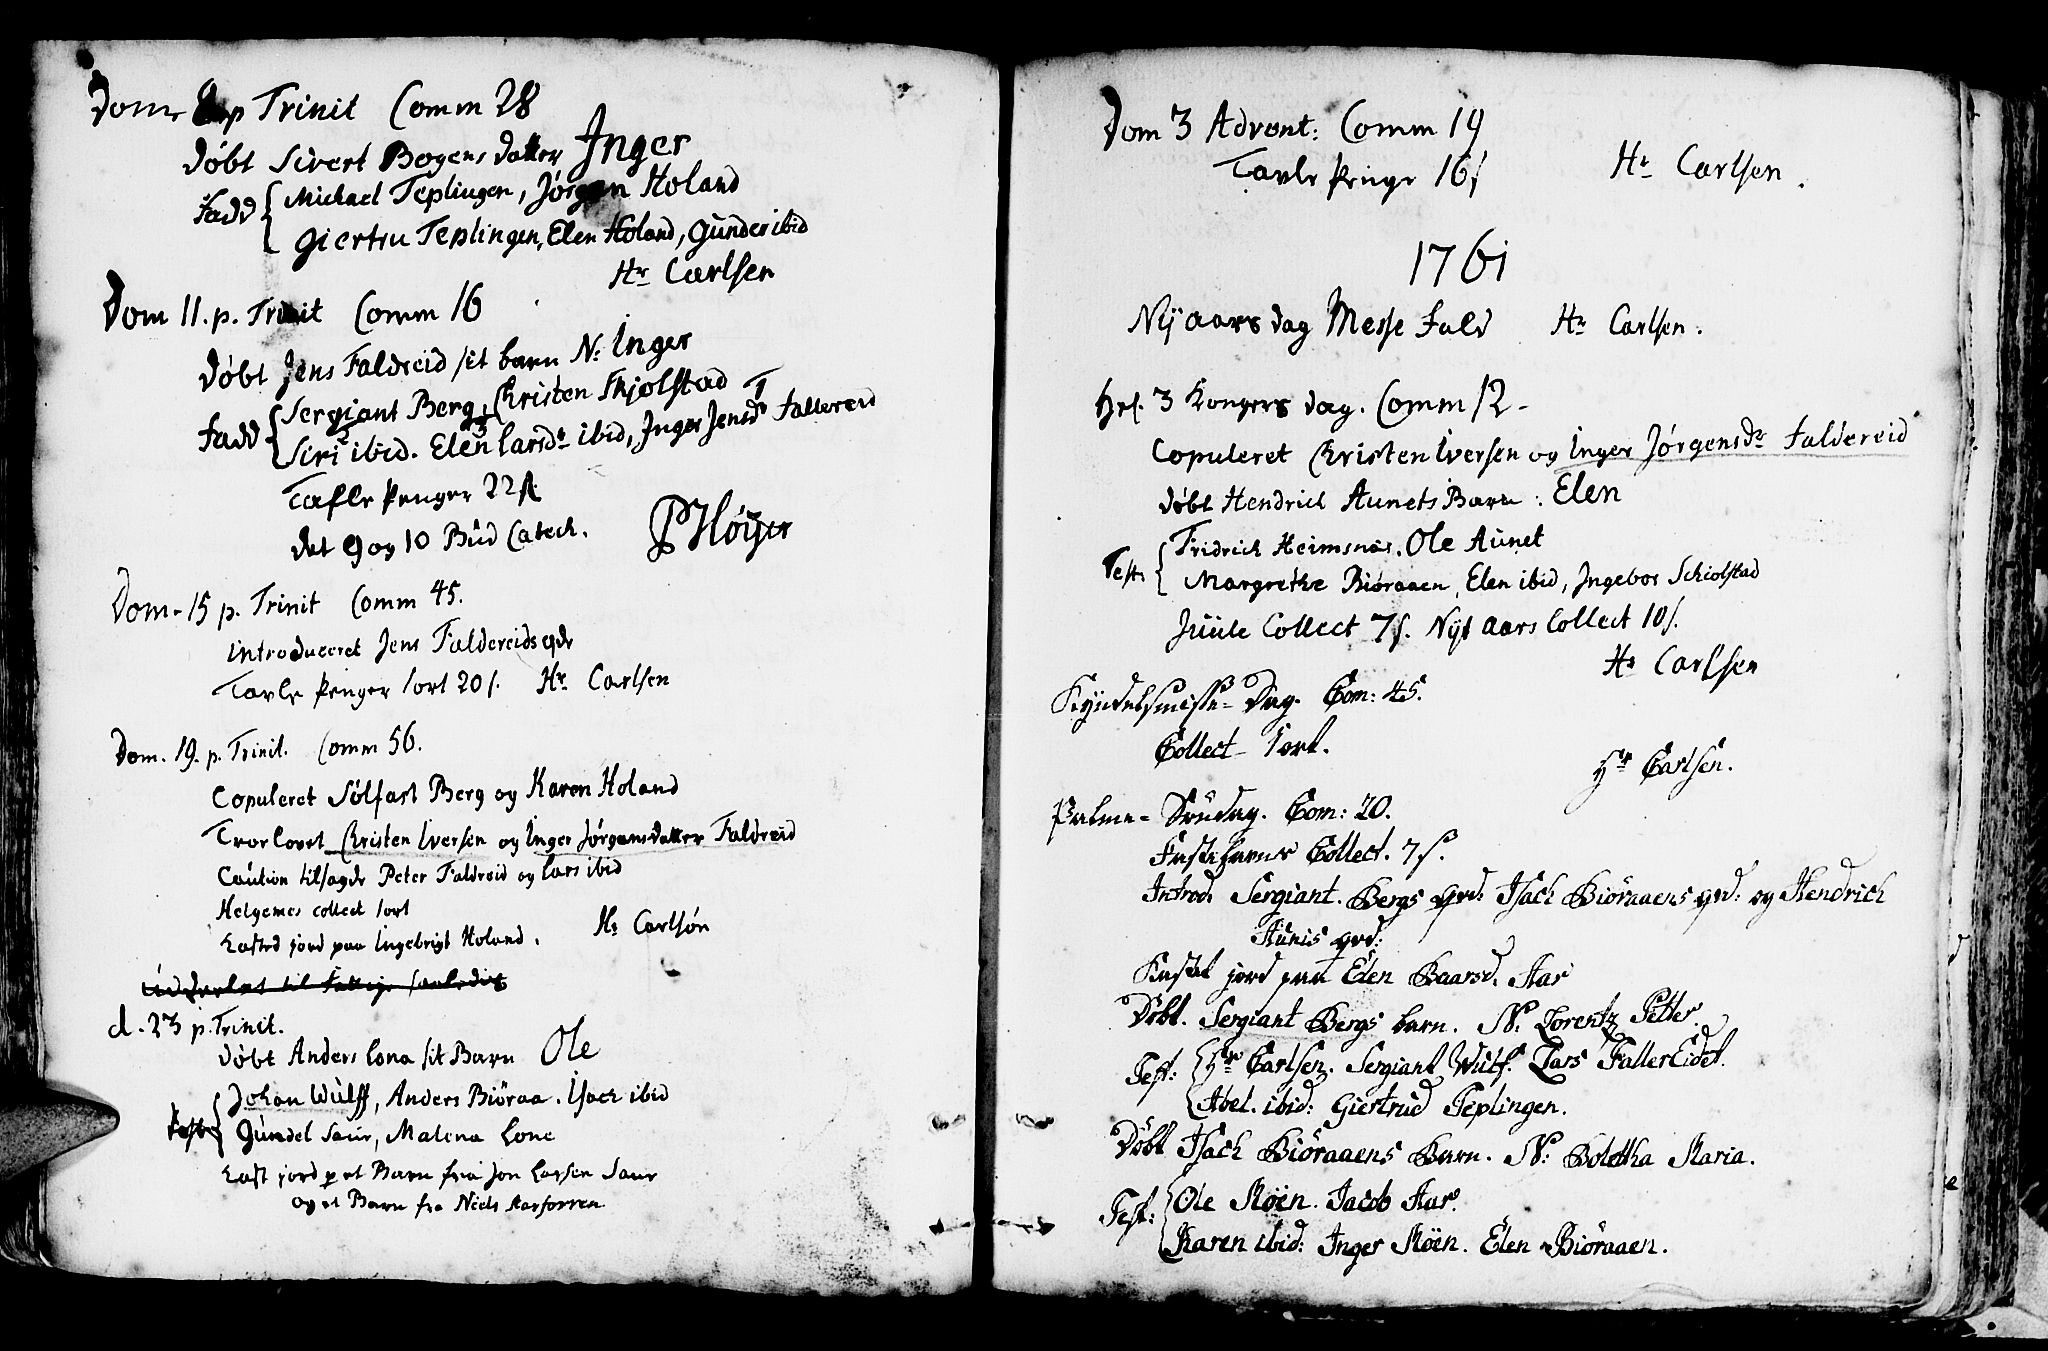 Dom. 8 p Trinit Comm 28
døbt Sivert Bogens datter Inger
Fadd Michael Teplingen, Jørgen Holand
Giertru Teplingen, Elen Holand, Gunder ibid
Hr Carlsen
Dom 11. p. Trinit Comm 16
døbt Jens Faldreid sit barn N: Inger
Fadd Sergiant Berg, Christen Skjolstad
Siri ibid. Elen Larsdr ibid, Inger Jensdr Fallereid
Tafle penger 22 s
det 9 og 10 Bud Catech.
PHøÿer
Dom. 15 p. Trinit Comm 45.
introduceret Jens Faldereids qde
Tavle penger 1 ort 20 s. Hr Carlsen
Dom. 19. p. Trinit. Comm 56.
Copuleret Sølfast Berg og Karen Holand
Trorlovet Christen Iversen og Inger Jørgensdatter Faldreid
Caution tilsagde Peter Faldreid og Lars ibid
Helgemes collect 1 ort
Kasted jord paa Ingebrigt Holand. Hr Carlsøn
d. 23 p. Trinit.
døbt Anders Lona sit Barn Ole
Test Johan Wulff, Anders Biöraa. Isach ibid
Gundel Saur, Malena Lone
Kast jord p et Barn fra Jon Larsen Saur
og et Barn fra Niels
Dom 3 Advent: Comm 19
Tavle penge 16 s
Hr Carlsen.
1761
Nÿ aars dag Messe Fald Hr Carlsen.
Hel. 3 Kongers dag. Comm 12 -
Copuleret Christen Iversen og Inger Jørgensdr Faldereid
døbt Hendrich Aunets Barn: Elen
Test. Fridrich Heimsnæs. Ole Aunet
Margrethe Biøraaen, Elen ibid, Ingebor Schiolstad
Juule Collect 7 s. Nÿt aars Collect 10 s.
Hr Carlsen
Kyndelsmisse-Dag. Com: 45.
Collect 1 ort.
Hr Carlsen.
Palme-Søndag. Com: 20.
Fastelavns Collect. 7 s.
Introd. Sergiant. Bergs qvd: Isach Biöraaens qvd: og Hendrich
Aunis qvd:
Kastet jord paa Elen Baarsd. Aar
Døbt. Sergiant Bergs barn. N: Lorentz Petter
Test: Hr Carlsen. Sergiant Wulf. Lars FallerEidet.
Abel. ibid: Giertrud Teplingen.
Døbt Isach Biöraaens Barn. N: Boletha Maria.
Test: Ole Möen. Jacob Aar.
Karen ibid: Inger Möen. Elen Biöraaen.